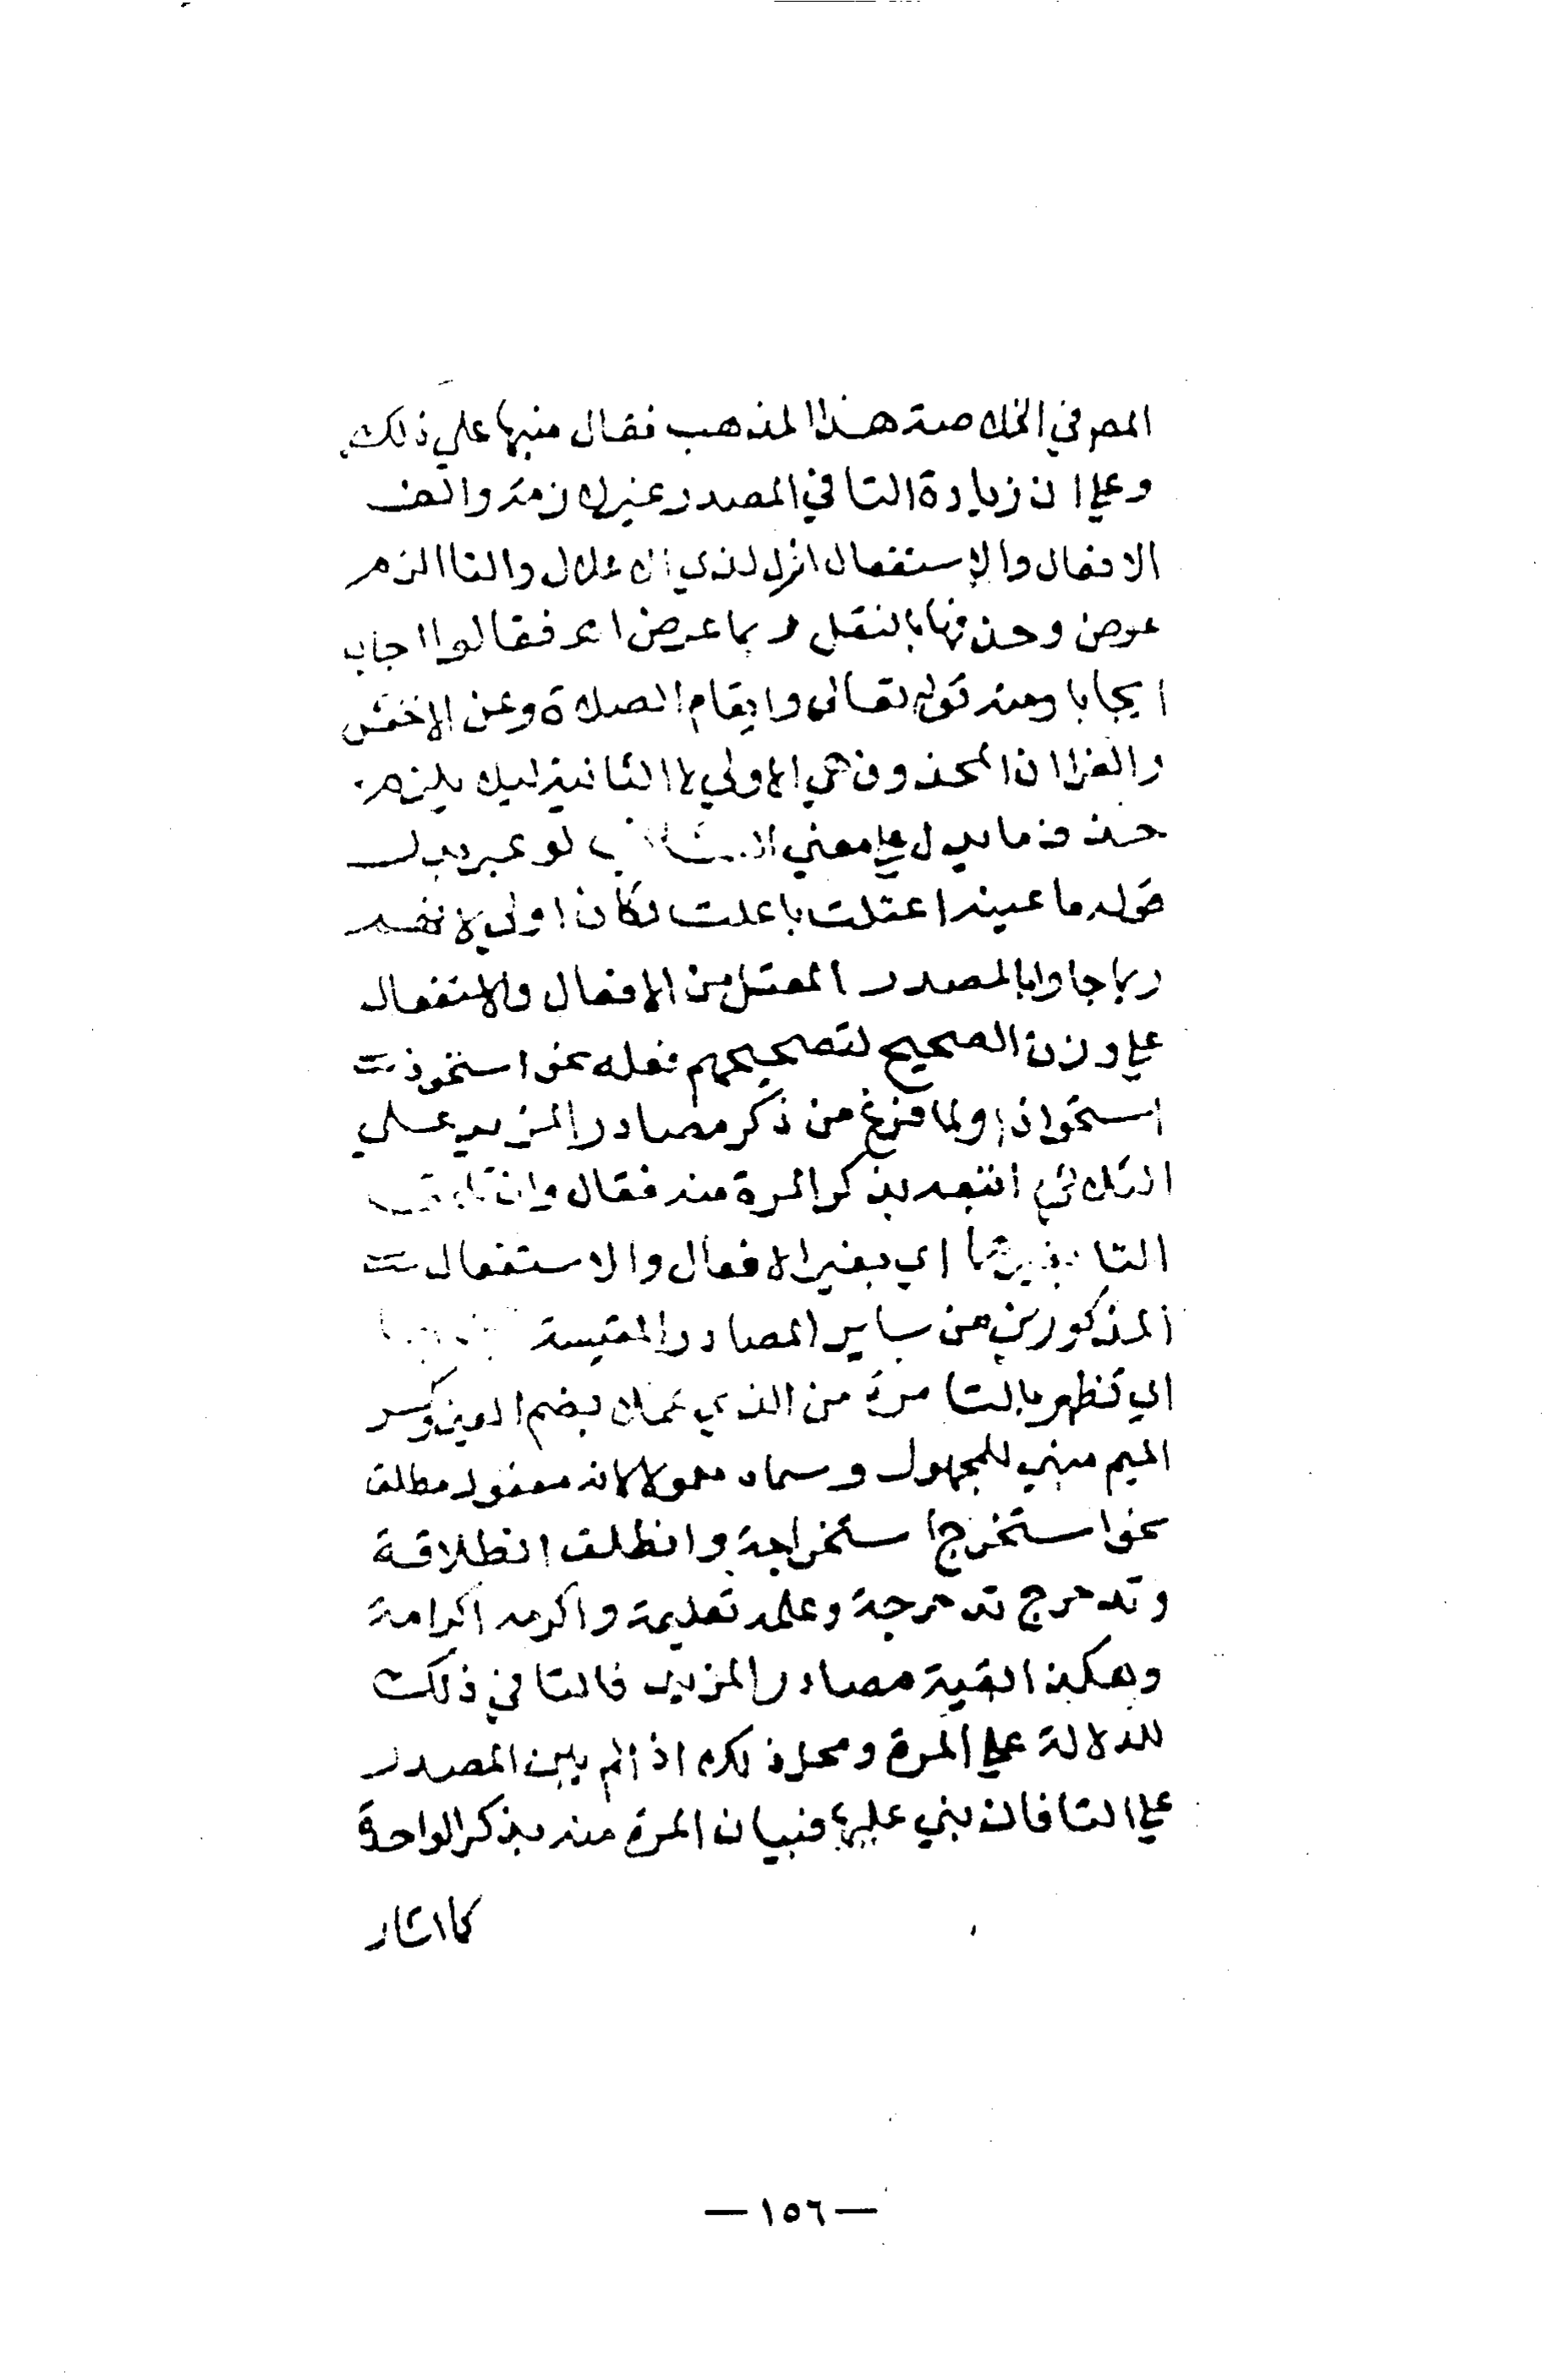 المص في الخلاصة هذا المذهب فقال منبها علي ذلك
وعلي ان زيادة التا في المصدر غير لازمة والف
الافعال والاستفعال ازل لذي الاعلال والتا الزم
عوض وحذفها بالنقل ربما عرض اهـ فقالوا اجاب
ايجابا ومنه قوله تعالى وايقام الصلاة وعن الاخفش
والفرا ان المحذوف هي الاولي لا الثانية ليلا يلزم
حذف ما يدل علي معني لو عبر بدل
قوله ما عينه اعتلت باعلت لكان اولي لانهم
ربما جاوا بالمصدر المعتل من الافعال والاستفعال
علي وزن الصحيح لتصحيحهم فعله نحو استحوذت
استحواذا ولما فرغ من ذكر مصادر المزيد علي
الثلاثي اتبعه بذكر المرة منه فقال وان
التا بغيرهما اي بغير الافعال والاستفعال
المذكورين من ساير المصادر المقيسة
اي تظهر بالتا مرة من الذي عملا بضم العين وكسر
الميم مبني للمجهول وسماه معمولا لانه مفعول مطلق
نحو استخرج استخراجة وانطلق انطلاقة
وتدحرج تدحرجة وعلمه تعليمة واكرمه اكرامة
وهكذا بقية مصادر المزيد فالتا في ذلك
للدلالة علي المرة ومحل ذلك اذا لم يبن المصدر
علي التا فان بني عليها فبيان المرة منه بذكر الواحدة
كما اشار
— ١٥٦ —